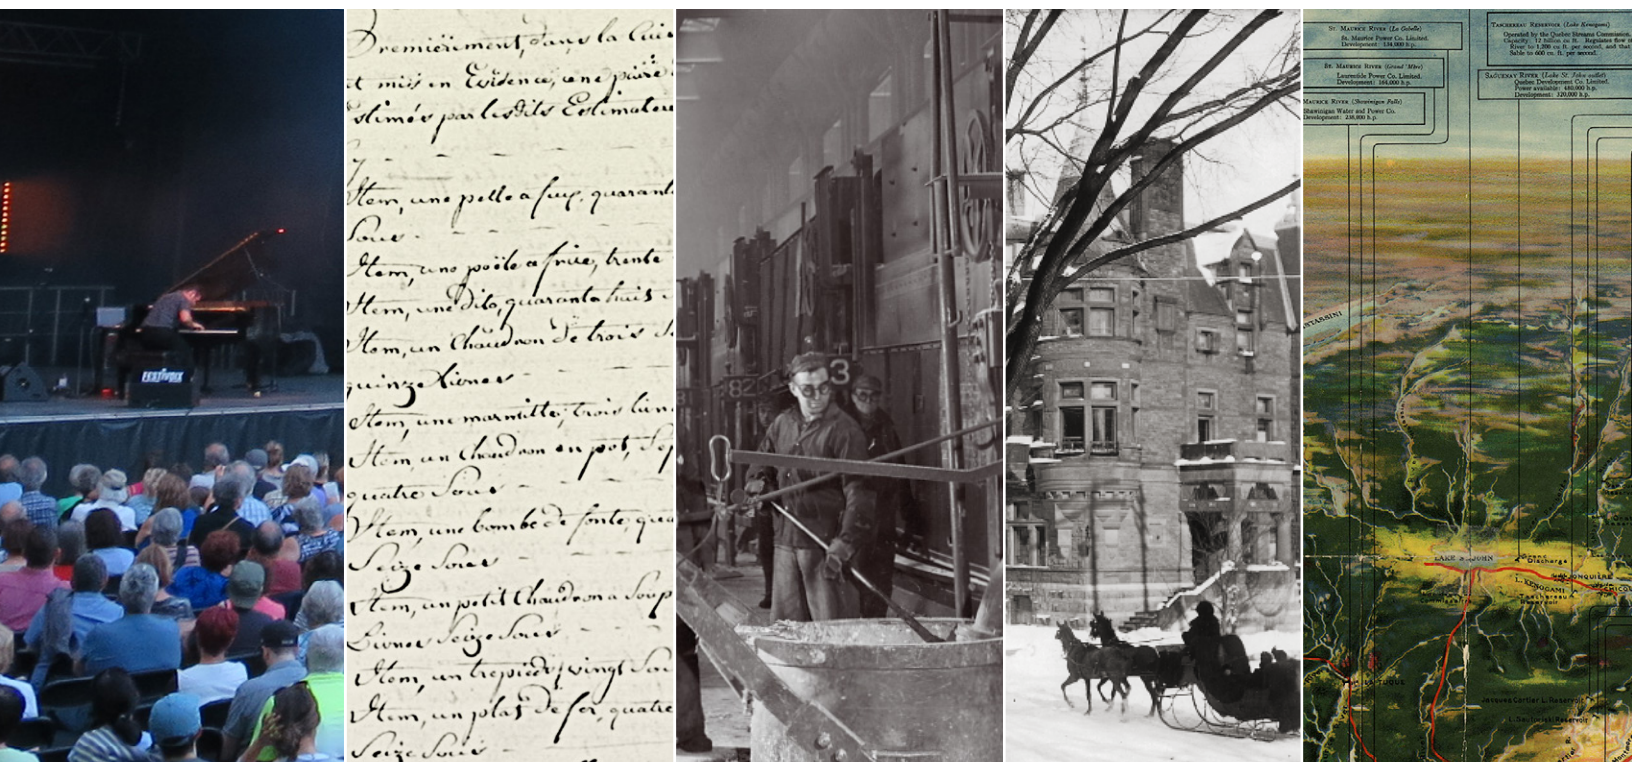 FESTIVOIX
Premièrement, dans la
et mis en Evidence, une
Estimés par lesdits Estimateurs
Item, une pelle a feu, quarante
Sous
Item, une poële a frire, trente
Item, une dito, quarante huit
Item, un Chaudron de trois
quinze Livres
Item, une marmitte, trois
Item, un Chaudron en pot,
quatre Sous
Item, une bombe de fonte,
Seize Sous
Item, un petit Chaudron a Soup
Livres Seize Sous
Item, un trepied, vingt Sous
Item, un plat de fer, quatre
Seize Sous
82
3
St. Maurice River (La Gabelle)
St. Maurice Power Co. Limited.
Development: 134,000 h.p.
St. Maurice River (Grand'Mère)
Laurentide Power Co. Limited.
Development: 164,000 h.p.
Maurice River (Shawinigan Falls)
Shawinigan Water and Power Co.
Development: 238,000 h.p.
Taschereau Reservoir (Lake Kenogami)
Operated by the Quebec Streams Commission.
Capacity: 12 billion cu ft. Regulates flow o
River to 1,200 cu. ft. per second, and that
Sable to 600 cu. ft. per second.
Saguenay River (Lake St. John outlet)
Quebec Development Co. Limited.
Power available: 480,000 h.p.
Development: 320,000 h.p.
STASSINI
LAKE St. JOHN
Grand
Discharge
JONQUIÈRE
L. KENOGAMI
CHICOU
Taschereau
Reservoir
LA TUQUE
Jacques Cartier L. Reservoir
L. Savtorski Reservoir